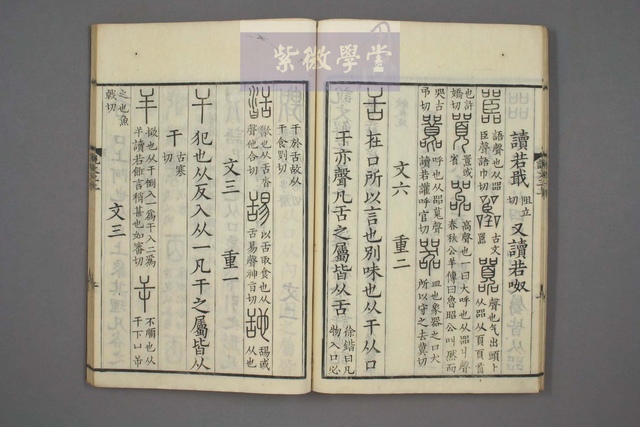 紫微學堂
讀若戢阻立切又讀若呶
嚚語聲也从㗊臣聲語巾切古文嚚囂聲也气出頭上从㗊从頁頁首
也許嬌切囂或省嘂高聲也一曰大呼也从㗊丩聲春秋公羊傳曰魯昭公叫然而
哭古弔切呼也从㗊莧聲讀若讙呼官切器皿也象器之口犬所以守之去冀切
文六 重二
舌在口所以言也別味也从干从口
干亦聲凡舌之屬皆从舌徐鍇曰凡物入口必
干於舌故从干食列切
歠也从舌沓聲他合切舓以舌取食也从舌易聲神旨切舓或从也
文三 重一
干犯也从反入从一凡干之屬皆从
干古寒切
𢆉撖也从干倒入一爲干入二爲𢆉讀若飪言稍甚也如審切屰不順也从干下凵屰
之也魚戟切 文三